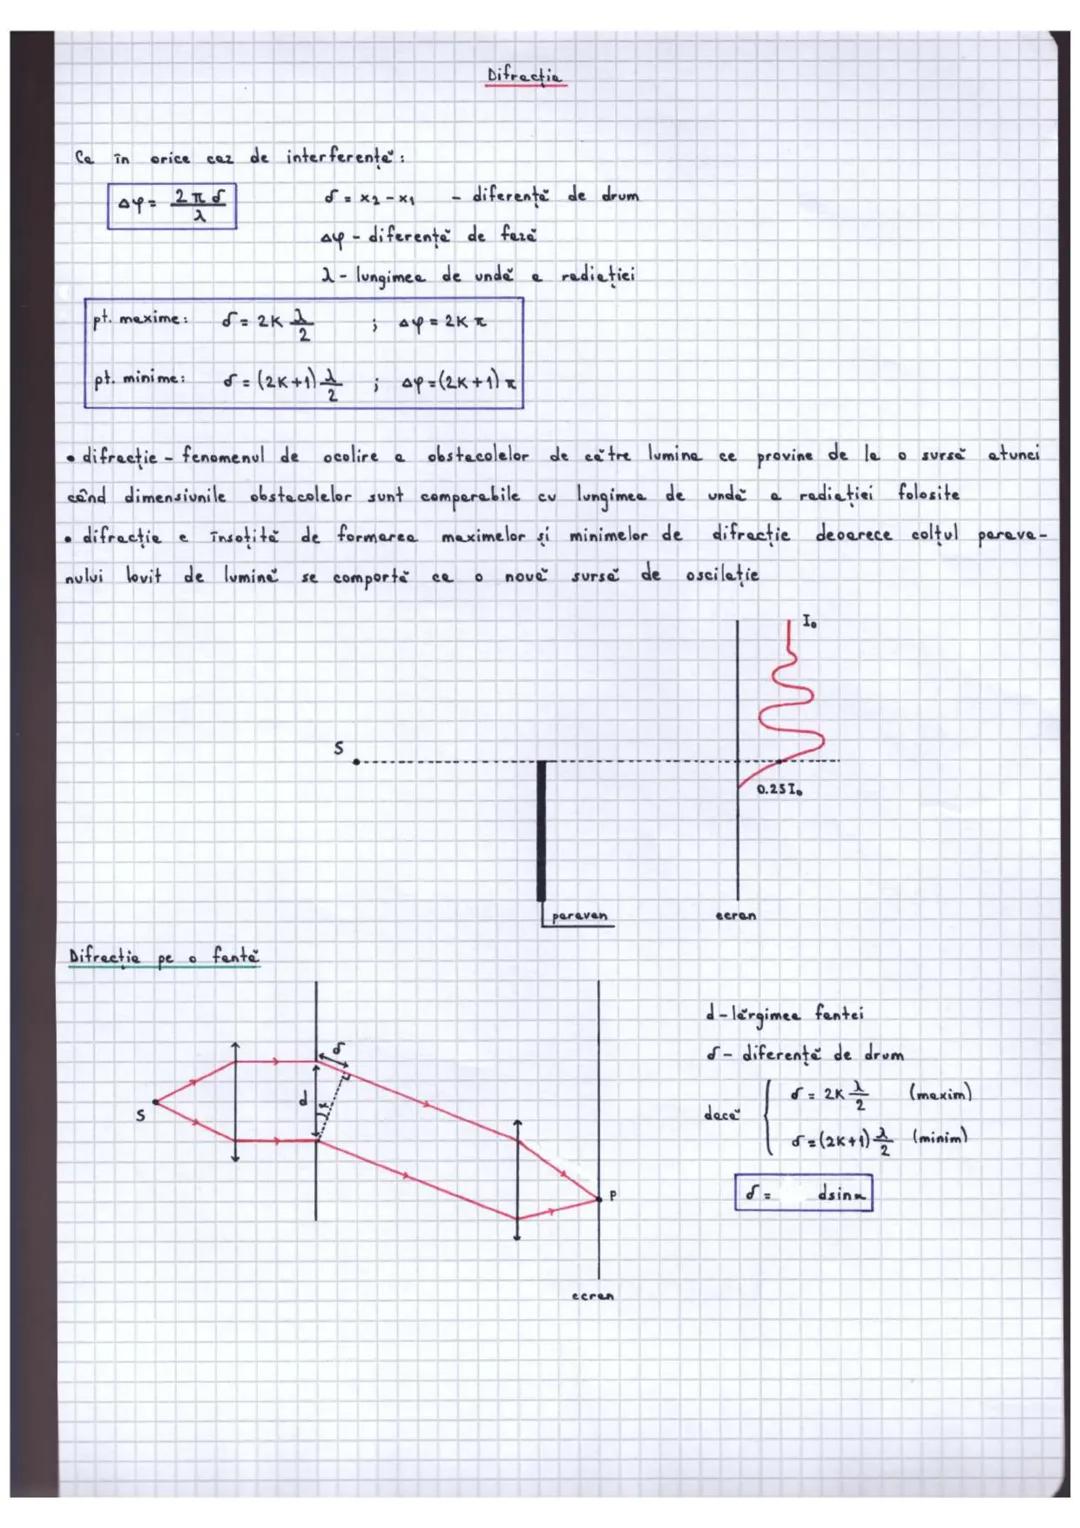 Difracția
Ca în orice caz de interferență:
Δφ = 2πδ/λ
δ = x₂ - x₁ - diferență de drum
Δφ - diferență de fază
λ - lungimea de undă a radiației
pt. maxime: δ = 2K λ/2 ; Δφ = 2Kπ
pt. minime: δ = (2K+1) λ/2 ; Δφ = (2K+1)π
• difracție - fenomenul de ocolire a obstacolelor de către lumina ce provine de la o sursă atunci
când dimensiunile obstacolelor sunt comparabile cu lungimea de undă a radiației folosite
• difracția e însoțită de formarea maximelor și minimelor de difracție deoarece colțul parava-
nului lovit de lumină se comportă ca o nouă sursă de oscilație
I₀
S
0.25I₀
paravan
ecran
Difracția pe o fantă
d - lărgimea fantei
δ - diferență de drum
dacă { δ = 2K λ/2 (maxim)
δ = (2K+1) λ/2 (minim)
δ = dsinα
δ
d
α
S
P
ecran